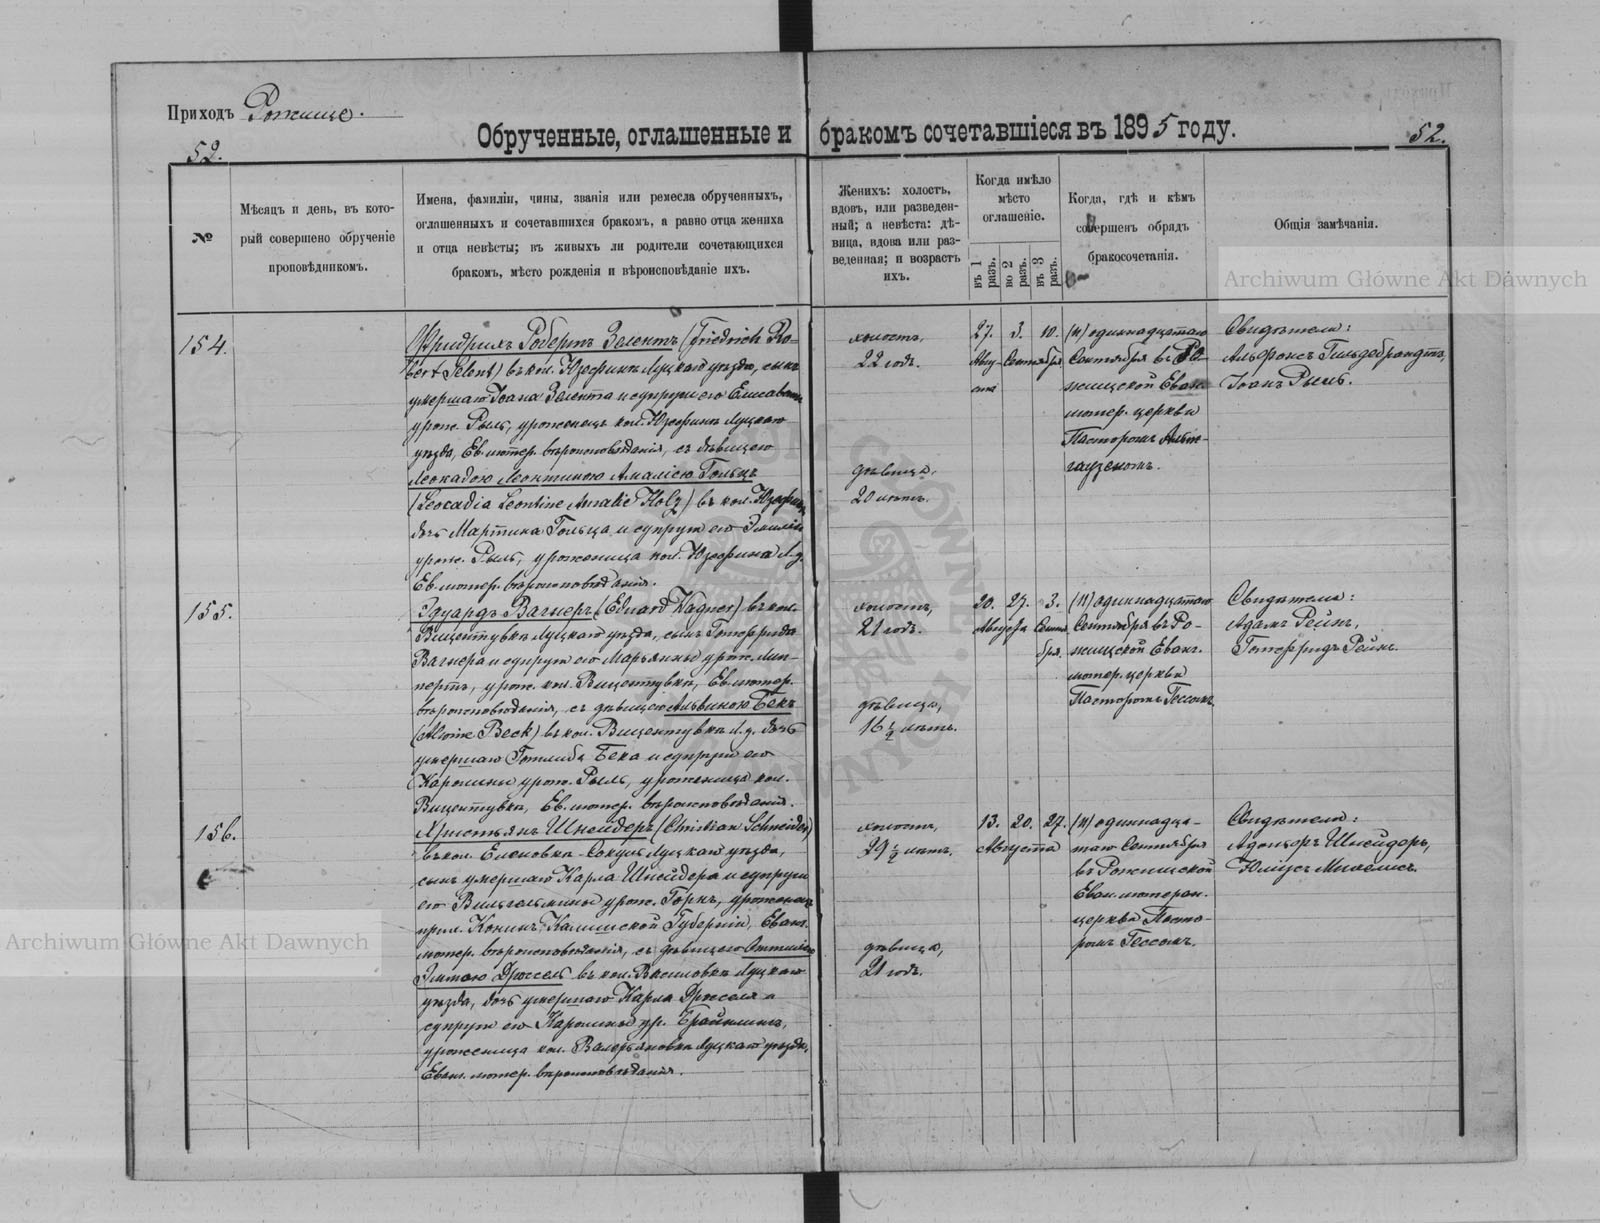 Приходъ Рожище.
52.
Обрученные, оглашенные и бракомъ сочетавшіеся въ 1895 году.
52.
№
Мѣсяцъ и день, въ кото-
рый совершено обрученіе
проповѣдникомъ.
Имена, фамиліи, чины, званія или ремесла обрученныхъ,
оглашенныхъ и сочетавшихся бракомъ, а равно отца жениха
и отца невѣсты; въ живыхъ ли родители сочетающихся
бракомъ, мѣсто рожденія и вѣроисповѣданіе ихъ.
Женихъ: холостъ,
вдовъ, или разведен-
ный; а невѣста: дѣ-
вица, вдова или раз-
веденная; и возрастъ
ихъ.
Когда имѣло
мѣсто
оглашеніе.
въ 1 разъ.
во 2 разъ.
въ 3 разъ.
Когда, гдѣ и кѣмъ
совершенъ обрядъ
бракосочетанія.
Общія замѣчанія.
154.
Фридрихъ Робертъ Зелентъ (Friedrich Ro-
bert Selent) въ кол. Юзефинъ Луцкаго уѣзда, сынъ
умершаго Іоана Зелента и супруги его Елисаветы
урож. Рыль, уроженецъ кол. Юзефинъ Луцкаго
уѣзда, Ев. лютер. вѣроисповѣданія, съ дѣвицею
Леокадою Леонтиною Амаліею Гольцъ
(Leocadia Leontine Amalie Holz) въ кол. Юзефинъ,
дочь Мартина Гольца и супруги его Эмиліи
урож. Рыль, уроженица кол. Юзефина Л.у.
Ев. лютер. вѣроисповѣданія.
холостъ,
22 годъ.
дѣвица,
20 лѣтъ.
27. 3. 10.
Авгу- Сентября
ста
(11) одиннадцатаго
Сентября въ Ро-
жищской Еван.
лютер. церкви
Пасторомъ Альт-
гаузеномъ.
Свидѣтели:
Альфонсъ Гильдебрандтъ,
Іоанъ Рыль.
155.
Эдуардъ Вагнеръ (Eduard Wagner) въ кол.
Вицентувкѣ Луцкаго уѣзда, сынъ Готфрида
Вагнера и супруги его Марьянны урож. Лип-
пертъ, урож. кол. Вицентувки, Ев. лютер.
вѣроисповѣданія, съ дѣвицею Альвиною Бекъ
(Alwine Beck) въ кол. Вицентувкѣ Л.у. дочь
умершаго Готлиба Бека и супруги его
Каролины урож. Рыль, уроженица кол.
Вицентувки, Ев. лютер. вѣроисповѣданія.
холостъ,
21 годъ.
дѣвица,
16 ½ лѣтъ.
20. 27. 3.
Августа Сентя-
бря.
(11) одиннадцатаго
Сентября въ Ро-
жищской Еванг.
лютер. церкви
Пасторомъ Гессомъ.
Свидѣтели:
Адамъ Рейнъ,
Готфридъ Рейнъ.
156.
Христьянъ Шнейдеръ (Christian Schneider)
въ кол. Еленовкѣ-Сокуль Луцкаго уѣзда,
сынъ умершаго Карла Шнейдера и супруги
его Вильгельмины урож. Горнъ, уроженецъ
прих. Конинъ, Калишской Губерніи, Еванг.
лютер. вѣроисповѣданія, съ дѣвицею Оттиліею
Эммою Дрюсель въ кол. Ваксмовкѣ Луцкаго
уѣзда, дочь умершаго Карла Дрюселя и
супруги его Каролины ур.
уроженица кол. Валерьяновки Луцкаго уѣзда,
Еванг. лютер. вѣроисповѣданія.
холостъ,
29 ½ лѣтъ.
дѣвица,
21 годъ.
13. 20. 27.
Августа
(11) одиннадца-
таго Сентября
въ Рожищской
Еван. лютеран.
церкви Пасто-
ромъ Гессомъ.
Свидѣтели:
Адольфъ Шнейдеръ,
Юліусъ Михелисъ.
Archiwum Główne Akt Dawnych
Archiwum Główne Akt Dawnych